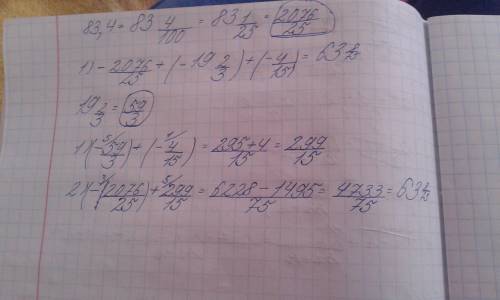 83,4 = 83 4/100 = 83 1/25 = 2076/25
1) - 2076/25 + (- 19 2/3) + (- 4/15) = 63
19 2/3 = 59/3
1) (- 59/3) + (- 4/15) = 295+4/15 = 299/15
2) (- 2076/25) + 299/15 = 6228 - 1495/75 = 4733/75 = 63